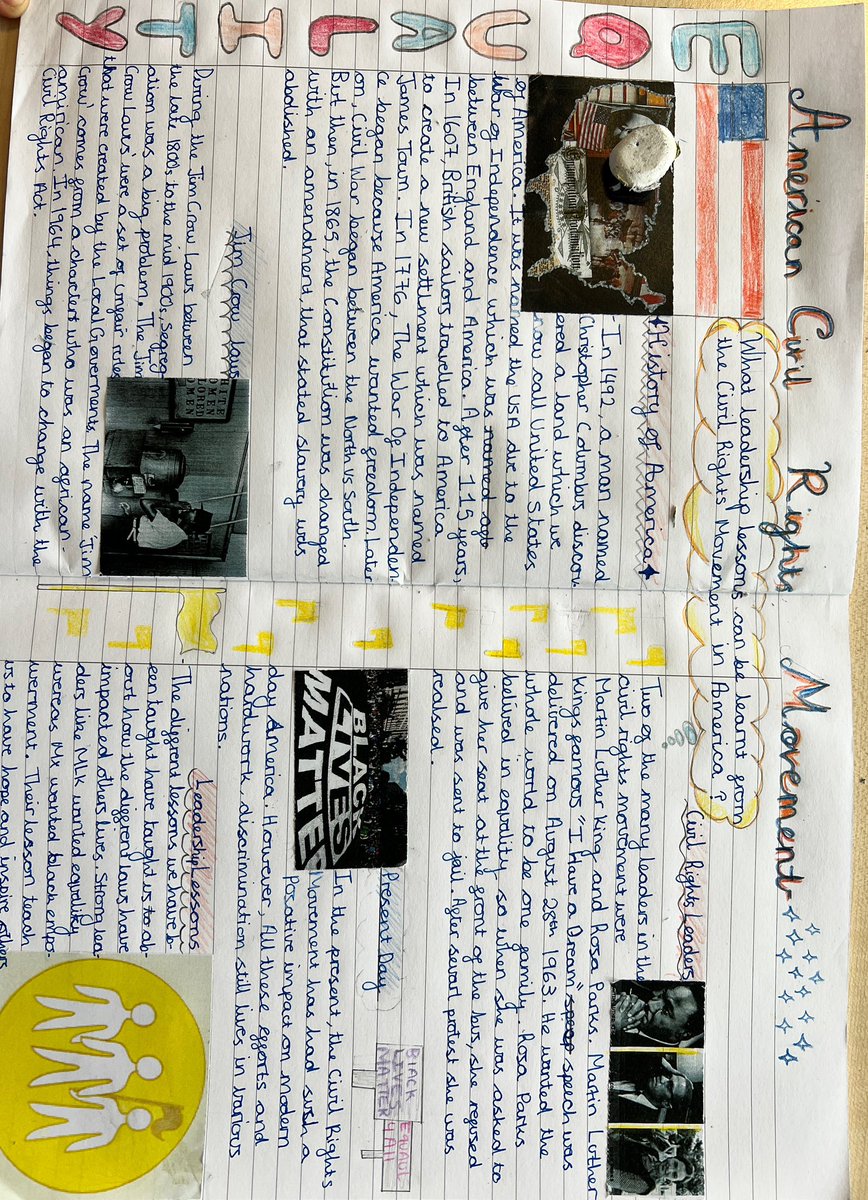 American Civil Rights Movement
What leadership lessons can be learnt from
the Civil Rights Movement in America?
EQUALITY
History of America
- In 1492, a man named
Christopher Columbus discov
ered a land which we
now call United States
of America. It was named the USA due to the
War of Independence which was named aft
between England and America. After 115 years,
In 1607, British sailors travelled to America
to create a new settlement which was named
James Town. In 1776, The War Of Independen-
ce began because America wanted freedom. Later
on, Civil War began between the North vs South.
But then, in 1865, the Constitution was changed
with an amendment, that stated slavery was
abolished.
Jim Crow Laws
During the Jim Crow Laws between
the late 1800s to the mid 1900s, segreg
ation was a big problem. The 'Jim
Crow Laws' were a set of unfair rules
that were created by the Local Goverments. The name 'Jim
Crow' comes from a charecter who was an african-
amirican. In 1964, things began to change with the
Civil Rights Act.
WHITE
WOMEN
COLORED
WOMEN
Civil Rights Leaders
Two of the many leaders in the
civil rights movement were
Martin Luther King and Rosa Parks. Martin Luther
kings famous "I Have a Dream" speop speech was
delivered on August 28th 1963. He wanted the
whole world to be one family. Rosa Parks
belived in equality so when she was asked to
give her seat at the front of the bus, she refused
and was sent to jail. After sevarl protest she was
realsed.
Present Day
BLACK
LIVES
MATTER
In the present, the Civil Rights
Movement has had such a
Posative impact on modern
day America. However, All these efforts and
hardwork, discrimination still lives in various
nations.
BLACK
LIVES
MATTER
EQUALI
4 All
Leadership Lessons
- The different lessons we have b-
een taught have taught us to ab-
out how the different laws have
impacted others lives. Strong lea-
ders like MLK wanted equality
wereas Mx wanted black empo-
werment. Their lesson teach
us to have hope and inspire others